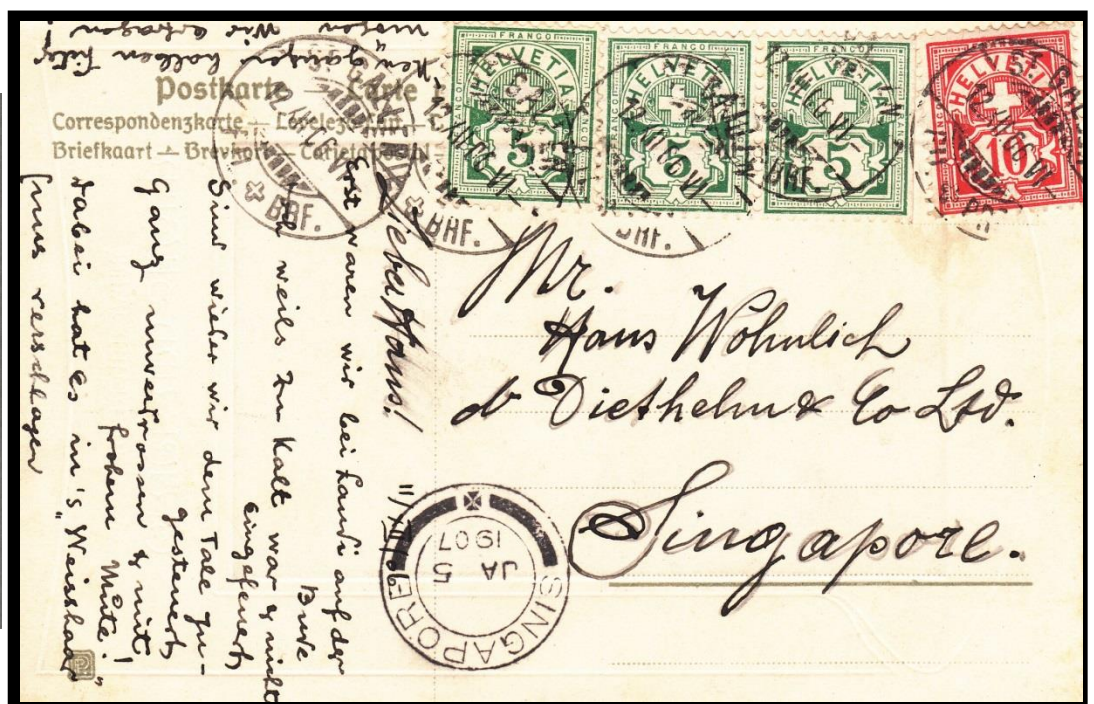 Postkarte — Carte
Correspondenzkarte — Levelező-
Briefkaart — Brevkort — Carjeta postal
FRANCO
HELVETIA
5
FRANCO
HELVETIA
5
FRANCO
HELVETIA
5
HELVETIA
10
BRF.
BRF.
BRF.
BRF.
Mr.
Hans Wohnlich
Diethelm & Co Ltd.
Singapore.
SINGAPORE
JA 5
1907
11/XII 06
Lieber Hans!
Erst waren wir bei Landi auf der
Bude
weils zu kalt war & nicht
eingefeuert,
Sind wieder wir dem Tale zu-
gesteuert,
Ganz unverdrossen & mit
frohem Mute!
Dabei hat es in's "Weisshaar"
uns verschlagen
Wir ertragen